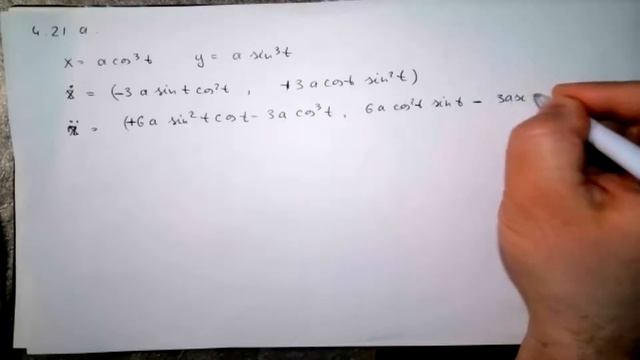 4.21 a.
x = a cos³t y = a sin³t
ẋ = (-3 a sin t cos²t , +3 a cos t sin²t)
ẍ = (+6a sin²t cos t - 3a cos³t , 6a cos²t sin t - 3a